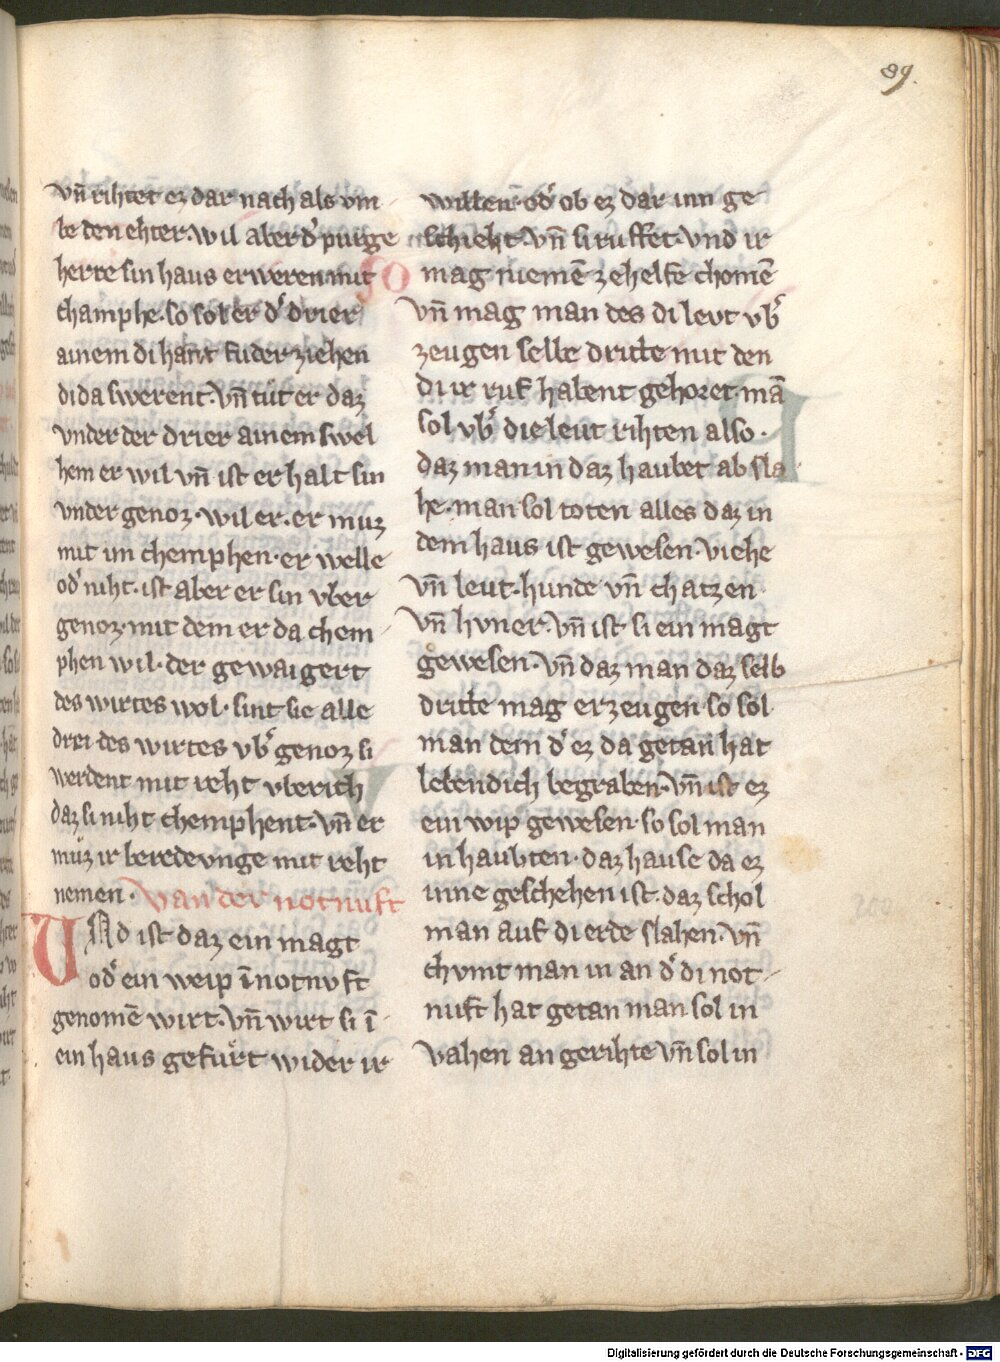 89.
vn̄ rihtet ez dar nach als vm
be den ehter. wil aber dˀ purge
herre sin haus erweren mit
champhe. so sol er dˀ drier
ainem di hant fuder ziehen
di da swerent. vn̄ tůt er daz
vnder der drier ainem swel
hem er wil vn̄ ist er halt sin
vnder genoz. wil er. er muz
mit im chemphen. er welle
odˀ niht. ist aber er sin vber
genoz. mit dem er da chem
phen wil. der gewaigert
des wirtes wol. sint sie alle
drei des wirtes vbˀ genoz si
werdent mit reht vberich
daz si niht chemphent. vn̄ er
můz ir beredevnge mit reht
nemen. Van der notnuft
VNd ist daz ein magt
odˀ ein weip ī notnvft
genomē wirt. vn̄ wirt si ī
ein haus gefůrt wider ir
willen. odˀ ob ez dar inn ge
schieht. vn̄ si ruffet. vnd ir
mag niemē ze helfe chomē
vn̄ mag man des di levt vbˀ
zeugen selbe dritte mit den
di ir ruf habent gehoret. mā
sol vbˀ die leut rihten also.
daz man in daz haubet ab sla
he. man sol toten alles daz in
dem haus ist gewesen. viehe
vn̄ leut. hunde vn̄ chatzen
vn̄ hvner. vn̄ ist si ein magt
gewesen. vn̄ daz man daz selb
dritte mag erzeugen. so sol
man dem dˀ ez da getan hat
lebendich begraben. vn̄ ist ez
ein wip gewesen. so sol man
in haubten. daz hause da ez
inne geschehen ist. daz schol
man auf di erde slahen. vn̄
chvmt man in an dˀ di not
nuft hat getan man sol in
vahen an gerihte vn̄ sol in
Digitalisierung gefördert durch die Deutsche Forschungsgemeinschaft - DFG